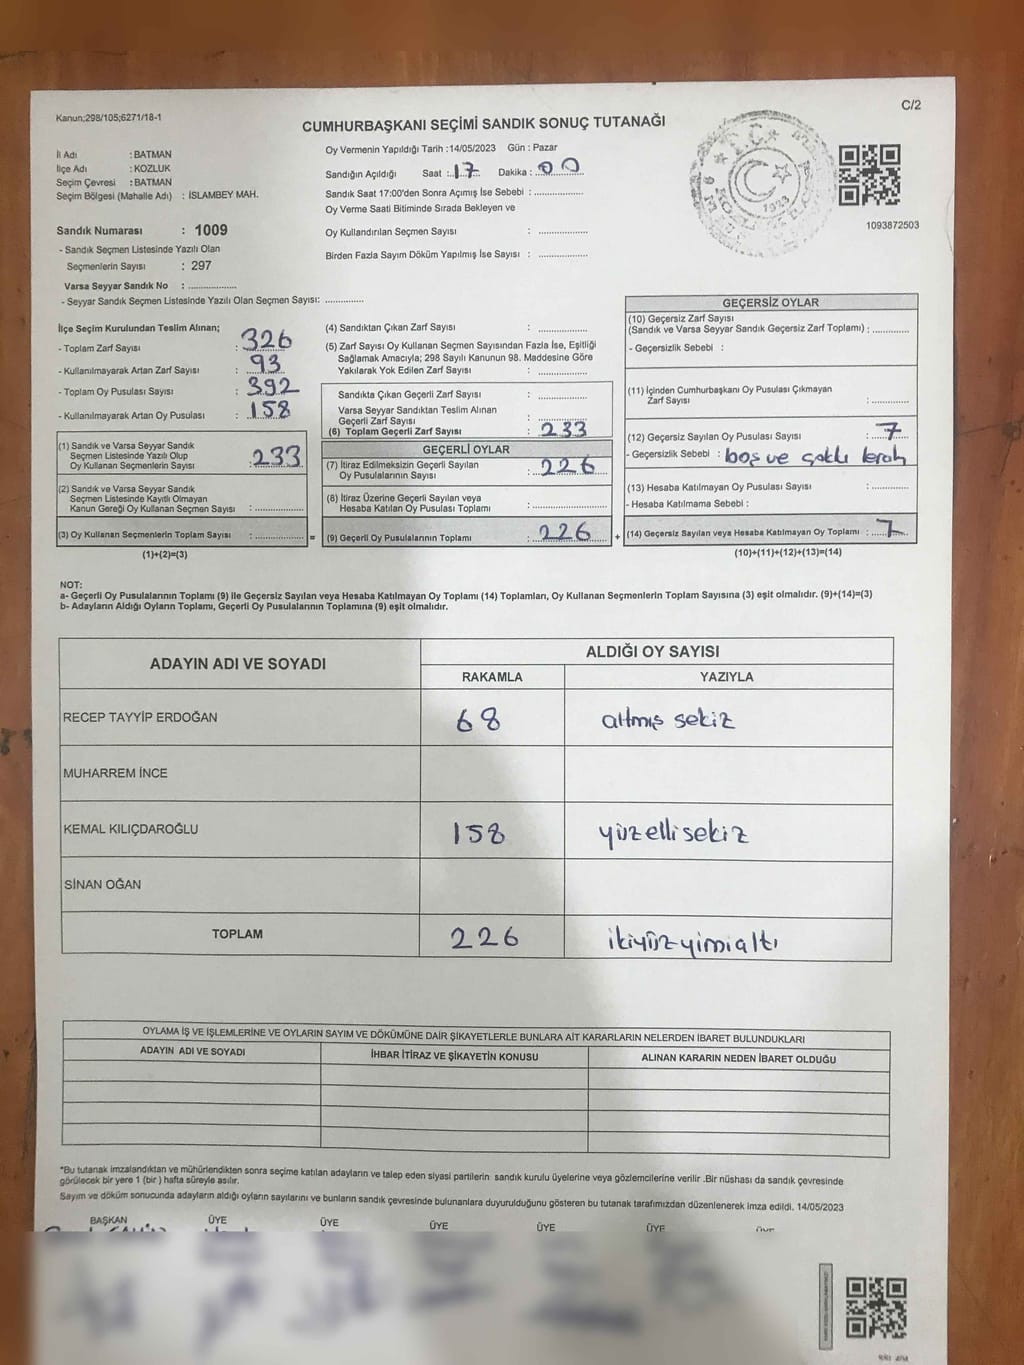 C/2
Kanun;298/105;6271/18-1
CUMHURBAŞKANI SEÇİMİ SANDIK SONUÇ TUTANAĞI
İl Adı : BATMAN
İlçe Adı : KOZLUK
Seçim Çevresi : BATMAN
Seçim Bölgesi (Mahalle Adı) : İSLAMBEY MAH.
Sandık Numarası : 1009
- Sandık Seçmen Listesinde Yazılı Olan
Seçmenlerin Sayısı : 297
Varsa Seyyar Sandık No : ..................
- Seyyar Sandık Seçmen Listesinde Yazılı Olan Seçmen Sayısı: ..............
Oy Vermenin Yapıldığı Tarih :14/05/2023 Gün : Pazar
Sandığın Açıldığı Saat : 17 Dakika : 00
Sandık Saat 17:00'den Sonra Açımış İse Sebebi : ..................
Oy Verme Saati Bitiminde Sırada Bekleyen ve
Oy Kullandırılan Seçmen Sayısı : ..................
Birden Fazla Sayım Döküm Yapılmış İse Sayısı : ..................
T.C.
1923
1093872503
İlçe Seçim Kurulundan Teslim Alınan;
- Toplam Zarf Sayısı : 326
- Kullanılmayarak Artan Zarf Sayısı : 93
- Toplam Oy Pusulası Sayısı : 392
- Kullanılmayarak Artan Oy Pusulası : 158
(1) Sandık ve Varsa Seyyar Sandık
Seçmen Listesinde Yazılı Olup
Oy Kullanan Seçmenlerin Sayısı : 233
(2) Sandık ve Varsa Seyyar Sandık
Seçmen Listesinde Kayıtlı Olmayan
Kanun Gereği Oy Kullanan Seçmen Sayısı : ..................
(3) Oy Kullanan Seçmenlerin Toplam Sayısı : ..................
(1)+(2)=(3)
=
(4) Sandıktan Çıkan Zarf Sayısı : ..................
(5) Zarf Sayısı Oy Kullanan Seçmen Sayısından Fazla İse, Eşitliği
Sağlamak Amacıyla; 298 Sayılı Kanunun 98. Maddesine Göre
Yakılarak Yok Edilen Zarf Sayısı : ..................
Sandıkta Çıkan Geçerli Zarf Sayısı : ..................
Varsa Seyyar Sandıktan Teslim Alınan
Geçerli Zarf Sayısı : ..................
(6) Toplam Geçerli Zarf Sayısı : 233
GEÇERLİ OYLAR
(7) İtiraz Edilmeksizin Geçerli Sayılan
Oy Pusulalarının Sayısı : 226
(8) İtiraz Üzerine Geçerli Sayılan veya
Hesaba Katılan Oy Pusulası Toplamı : ..................
(9) Geçerli Oy Pusulalarının Toplamı : 226
+
GEÇERSİZ OYLAR
(10) Geçersiz Zarf Sayısı
(Sandık ve Varsa Seyyar Sandık Geçersiz Zarf Toplamı) : ..............
- Geçersizlik Sebebi :
(11) İçinden Cumhurbaşkanı Oy Pusulası Çıkmayan
Zarf Sayısı : ..............
(12) Geçersiz Sayılan Oy Pusulası Sayısı : 7
- Geçersizlik Sebebi : boş ve çoklu
(13) Hesaba Katılmayan Oy Pusulası Sayısı : ..............
- Hesaba Katılmama Sebebi :
(14) Geçersiz Sayılan veya Hesaba Katılmayan Oy Toplamı : 7
(10)+(11)+(12)+(13)=(14)
NOT:
a- Geçerli Oy Pusulalarının Toplamı (9) ile Geçersiz Sayılan veya Hesaba Katılmayan Oy Toplamı (14) Toplamları, Oy Kullanan Seçmenlerin Toplam Sayısına (3) eşit olmalıdır. (9)+(14)=(3)
b- Adayların Aldığı Oyların Toplamı, Geçerli Oy Pusulalarının Toplamına (9) eşit olmalıdır.
ADAYIN ADI VE SOYADI
ALDIĞI OY SAYISI
RAKAMLA YAZIYLA
RECEP TAYYİP ERDOĞAN 68 altmış sekiz
MUHARREM İNCE
KEMAL KILIÇDAROĞLU 158 yüzellisekiz
SİNAN OĞAN
TOPLAM 226 ikiyüzyimialtı
OYLAMA İŞ VE İŞLEMLERİNE VE OYLARIN SAYIM VE DÖKÜMÜNE DAİR ŞİKAYETLERLE BUNLARA AİT KARARLARIN NELERDEN İBARET BULUNDUKLARI
ADAYIN ADI VE SOYADI İHBAR İTİRAZ VE ŞİKAYETİN KONUSU ALINAN KARARIN NEDEN İBARET OLDUĞU
*Bu tutanak imzalandıktan ve mühürlendikten sonra seçime katılan adayların ve talep eden siyasi partilerin sandık kurulu üyelerine veya gözlemcilerine verilir .Bir nüshası da sandık çevresinde
görülecek bir yere 1 (bir ) hafta süreyle asılır.
Sayım ve döküm sonucunda adayların aldığı oyların sayılarını ve bunların sandık çevresinde bulunanlara duyurulduğunu gösteren bu tutanak tarafımızdan düzenlenerek imza edildi. 14/05/2023
BAŞKAN ÜYE ÜYE ÜYE ÜYE ÜYE ÜYE